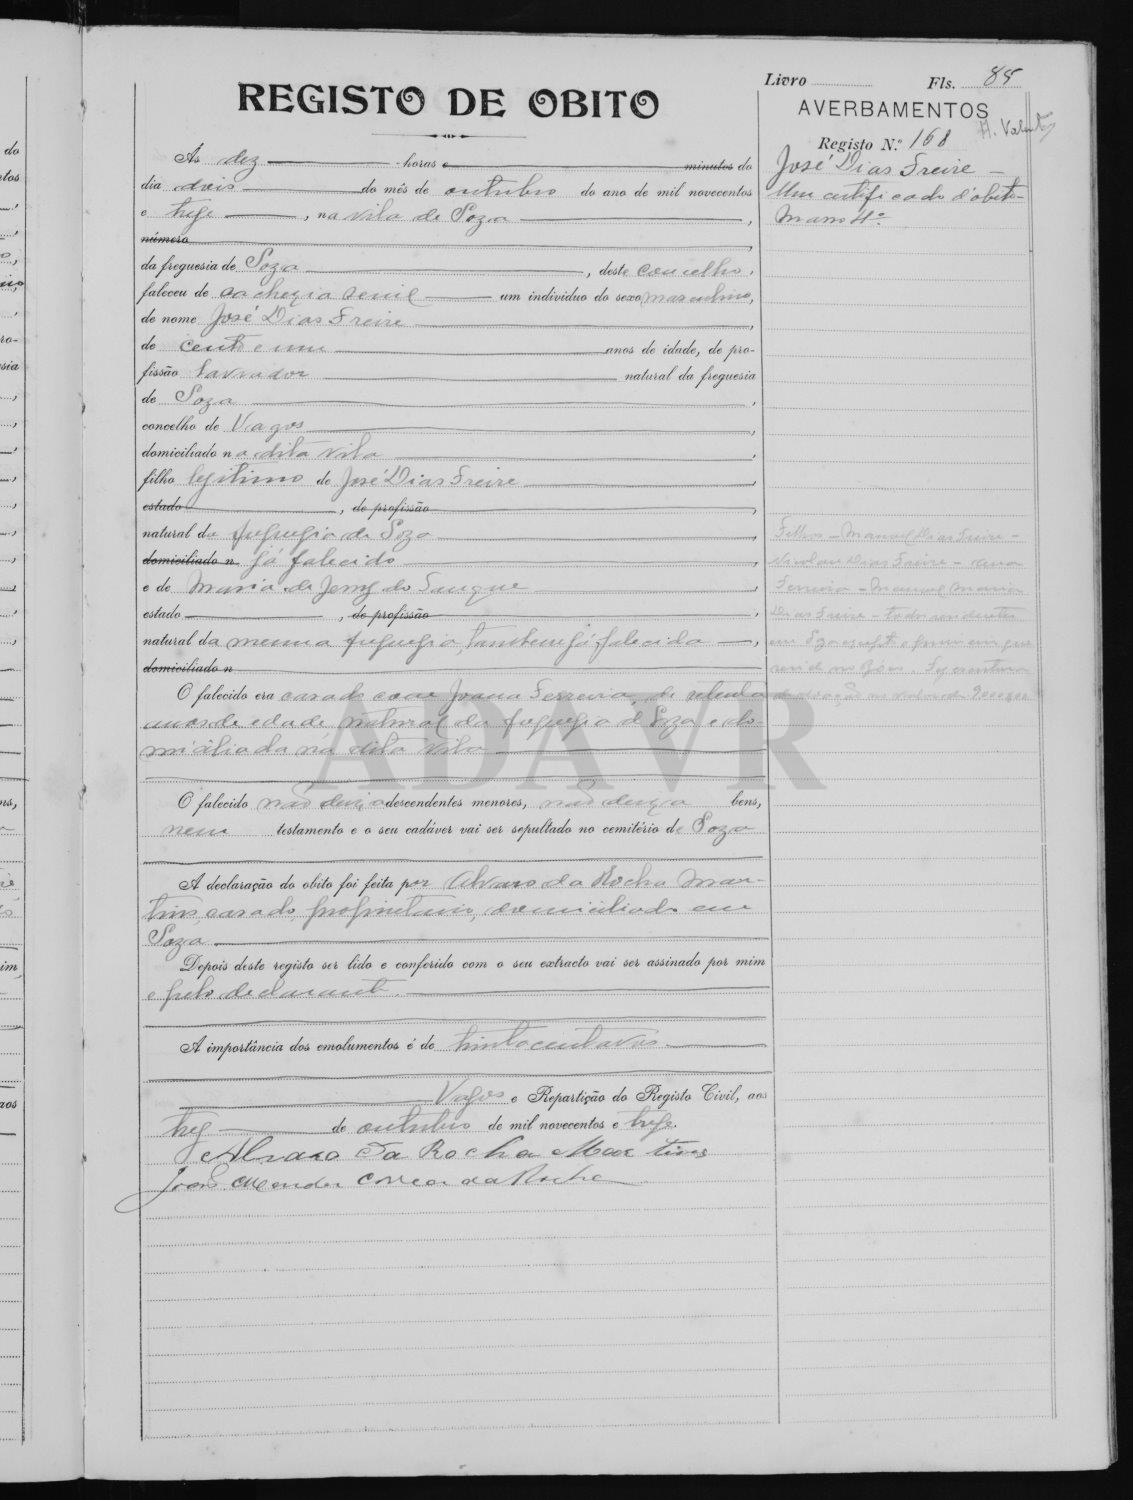 Livro Fls. 85
REGISTO DE OBITO
AVERBAMENTOS
Registo N.º 168
José Dias Freire
Um certificado d'obito
Maço 4º
Ás dez horas e minutos do
dia dois do mês de outubro do ano de mil novecentos
e treze, na vila de Soza,
número
da freguesia de Soza, deste concelho,
faleceu de cachexia senil um individuo do sexo masculino,
de nome José Dias Freire,
de cento e um anos de idade, de pro-
fissão lavrador natural da freguesia
de Soza,
concelho de Vagos,
domiciliado na dita vila,
filho legitimo de José Dias Freire,
estado, de profissão,
natural da freguesia de Soza,
domiciliado n já falecido,
e de Maria de Jesus do Sangue,
estado, de profissão,
natural da mesma freguesia tambem já falecida,
domiciliado n
O falecido era casado com Joana Ferreira, de
anos de edade, natural da freguesia de Soza e do-
miciliada na dita vila
O falecido não deixa descendentes menores, não deixa bens,
nem testamento e o seu cadáver vai ser sepultado no cemitério de Soza
A declaração do obito foi feita por Alvaro da Rocha Mar-
tins, casado, proprietario, domiciliado em
Soza
Depois deste registo ser lido e conferido com o seu extracto vai ser assinado por mim
e pelo declarante.
A importância dos emolumentos é de trinta centavos
Vagos e Repartição do Registo Civil, aos
trez de outubro de mil novecentos e treze.
Alvaro da Rocha Martins
João Mendes Correia da Rocha
Filhos - Manuel Dias Freire -
Dias Freire -
Ferreira - Manuel Maria
Dias Freire - todos residentes
em Soza
ADAVR